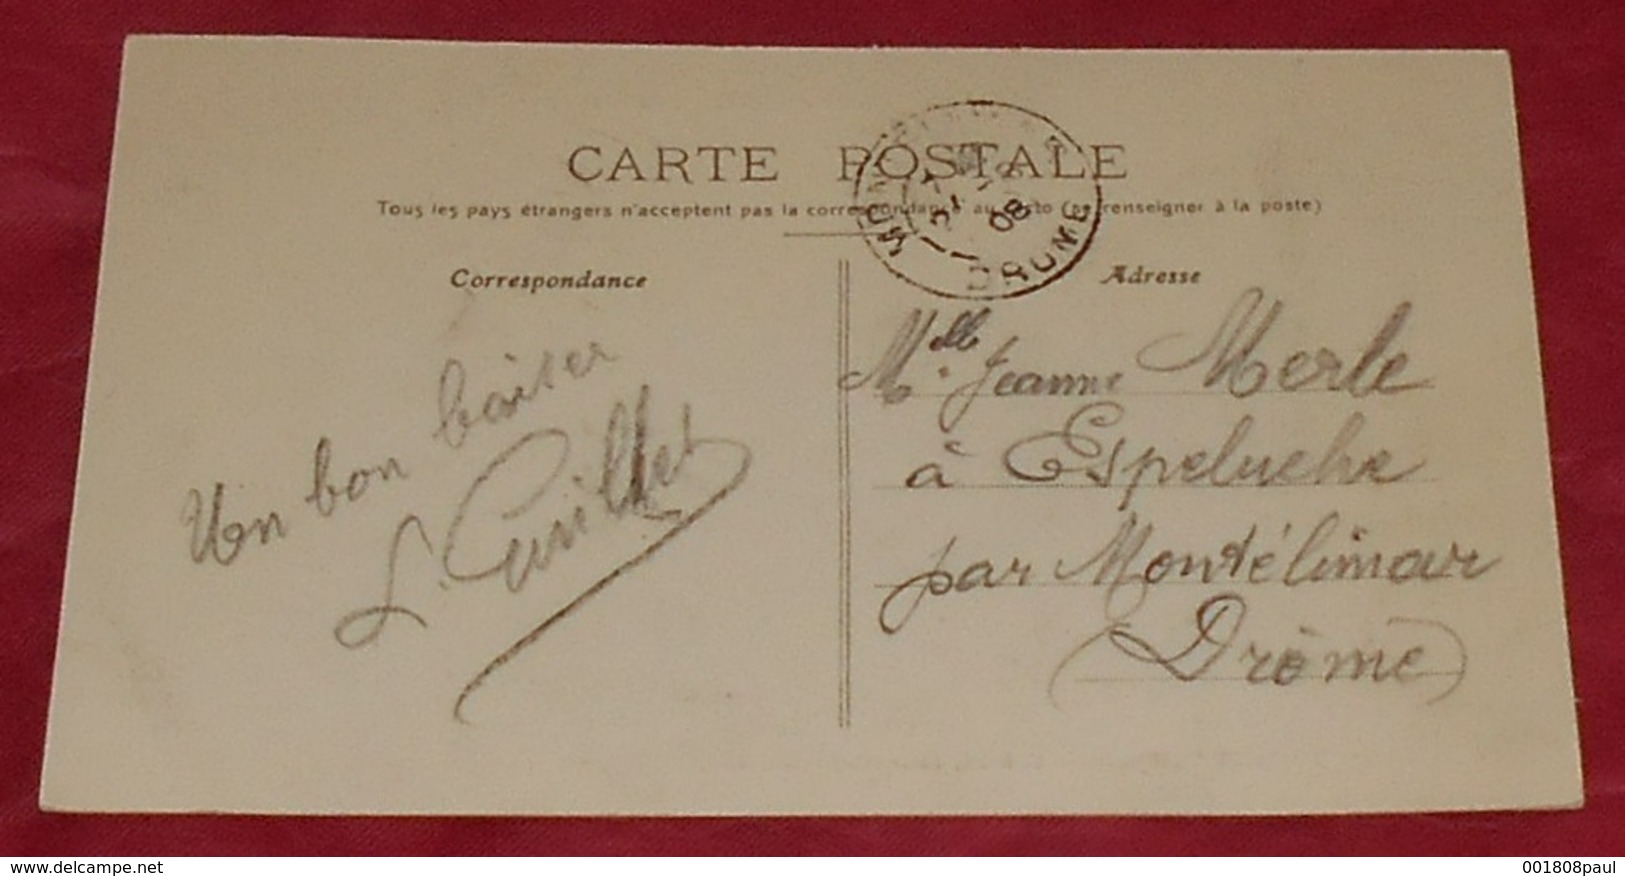 CARTE POSTALE
Tous les pays étrangers n'acceptent pas la correspondance au recto (se renseigner à la poste)
Correspondance
Un bon baiser
Adresse
Mlle Jeanne Merle
à Espeluche
par Montélimar
(Drôme)
08
DROME
delcampe.net
001808paul